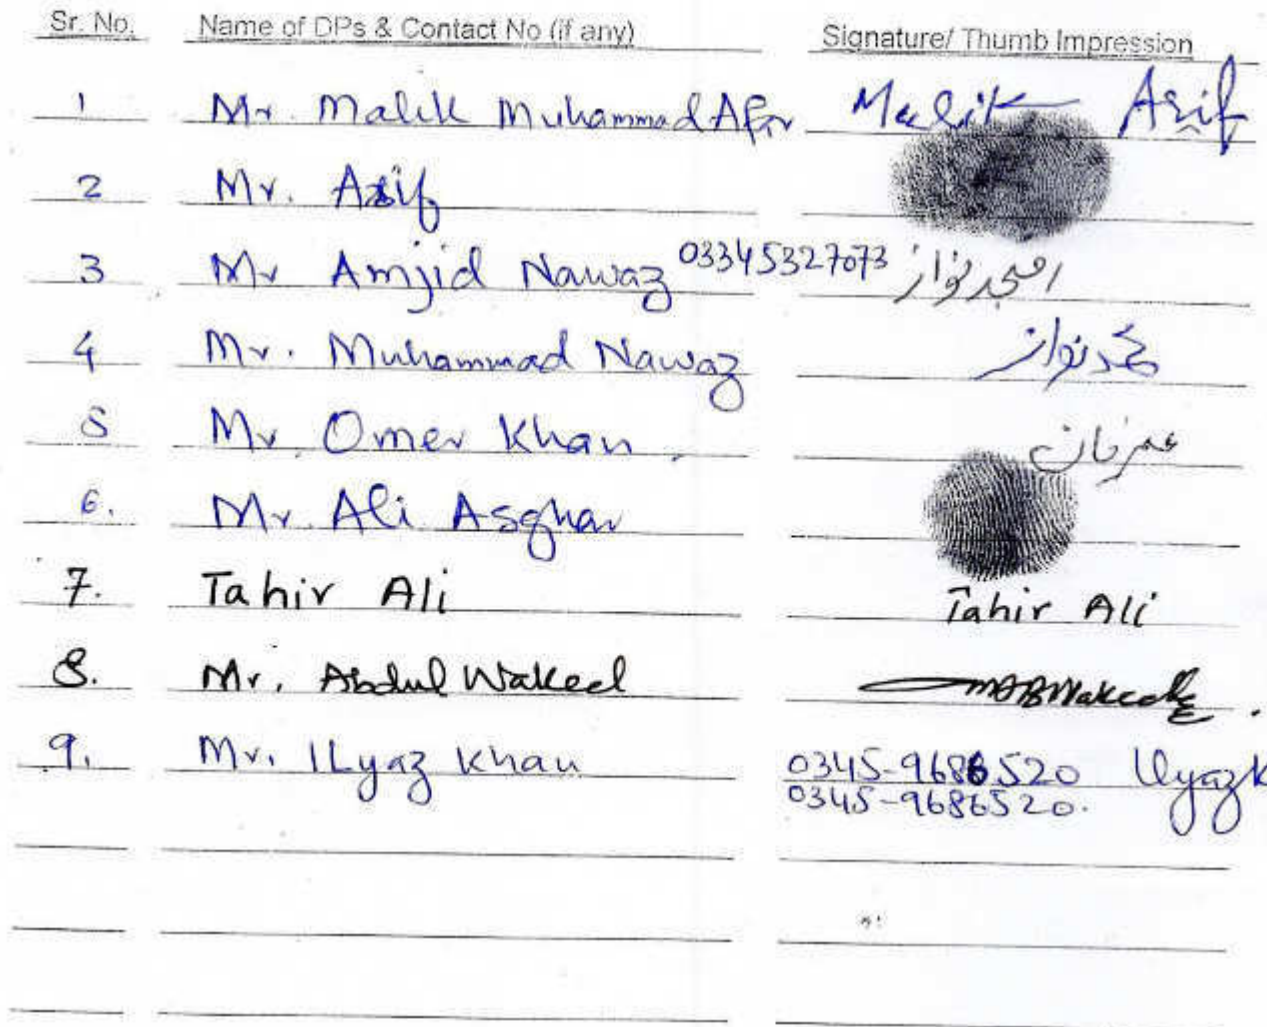 Sr. No. Name of DPs & Contact No (if any) Signature/ Thumb Impression
1 Mr. Malik Muhammad Malik Asif
2 Mr. Asif
3 Mr Amjid Nawaz 03345327073 امجد نواز
4 Mr. Muhammad Nawaz محمد نواز
5 Mr. Omer Khan. عمر خان
6. Mr. Ali Asghar
7. Tahir Ali Tahir Ali
8. Mr. Abdul Wakeel
9. Mr. ILyaz Khan 0345-9686520 Ilyaz K
0345-9686520.